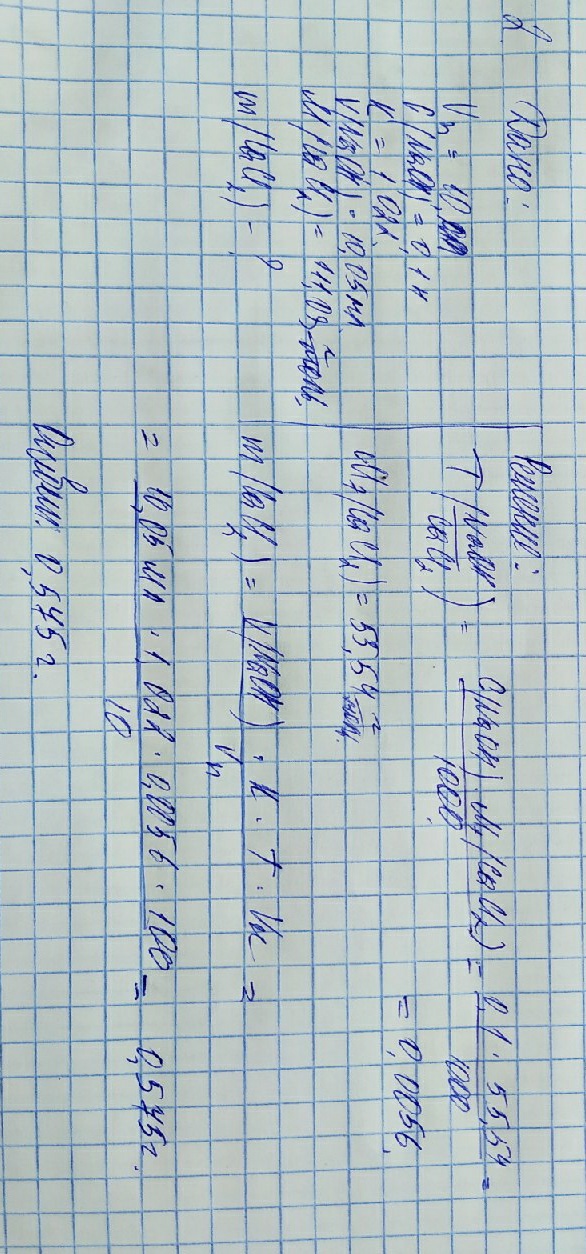 2.
Дано:
Vп = 10 мл
C(NaOH) = 0,1 н
K = 1,012
V(NaOH) = 10,05 мл
M(CaCl₂) = 111,08 г/моль.
m(CaCl₂) - ?
Решение:
T(NaOH/CaCl₂) = C(NaOH) · Mэ(CaCl₂) / 1000 = 0,1 · 55,54 / 1000 =
= 0,0056
Mэ(CaCl₂) = 55,54 г/моль.
m(CaCl₂) = V(NaOH) · K · T · Vк / Vп =
= 10,05 мл · 1,012 · 0,0056 · 100 / 10 = 0,545 г.
0,545 г.